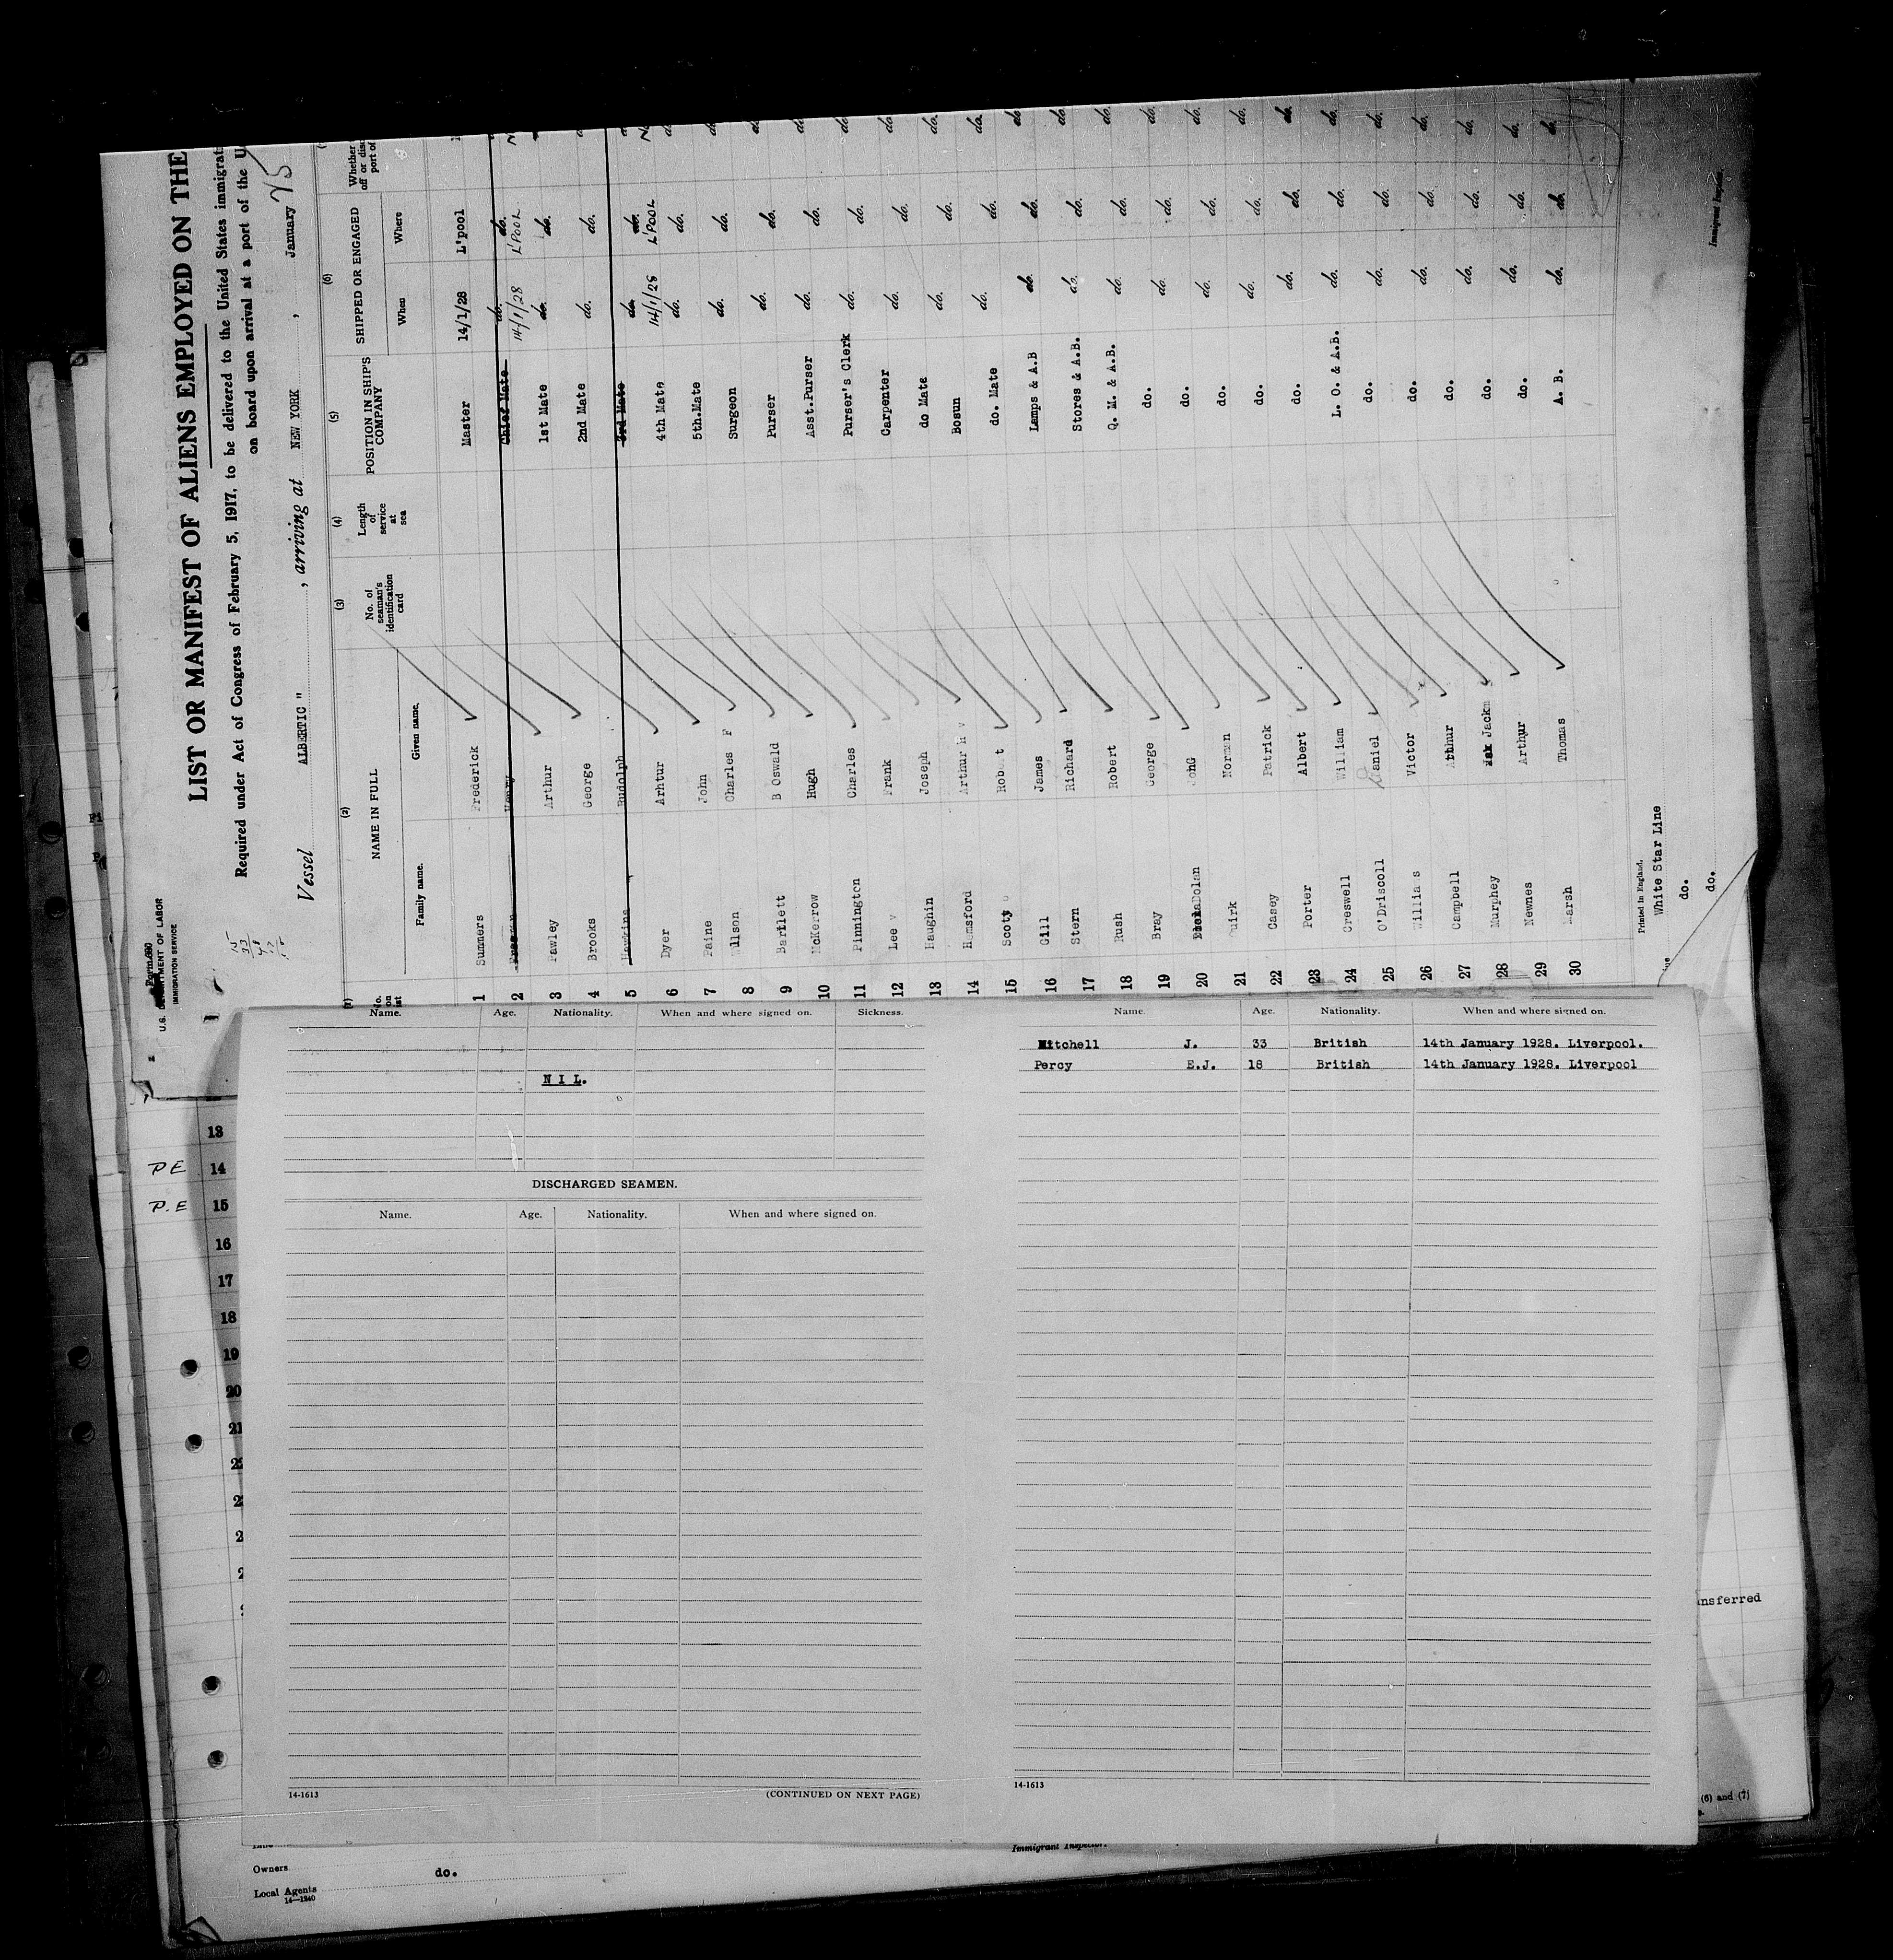 Form 680
U.S. DEPARTMENT OF LABOR
IMMIGRATION SERVICE
LIST OR MANIFEST OF ALIENS EMPLOYED ON THE
Required under Act of Congress of February 5, 1917, to be delivered to the United States immigrat
on board upon arrival at a port of the U
Vessel ALBERTIC " , arriving at NEW YORK , January
(1) (2) (3) (4) (5) (6)
No. on list NAME IN FULL No. of seaman's identification card Length of service at sea POSITION IN SHIP'S COMPANY SHIPPED OR ENGAGED Whether
off or disc
port of
Family name. Given name. When Where
1 Summers Frederick Master 14/1/28 L'pool
2 Henry Chief Mate do. do.
3 Pawley Arthur 1st Mate 14/1/28 do. L'POOL do.
4 Brooks George 2nd Mate do. do. do
5 Hawkins Rudolph 3rd Mate do. do.
6 Dyer Arhtur 4th Mate 14/1/28 do. L'POOL do.
7 Paine John 5th.Mate do. do. do
8 Charles F Surgeon do. do. do
9 Bartlett B Oswald Purser do. do. do
10 McKerrow Hugh Asst.Purser do. do. do
11 Pinnington Charles Purser's Clerk do. do. do
12 Lee Frank Carpenter do. do. do.
13 Haughin Joseph do Mate do. do. do.
14 Hemsford Arthur Bosun do. do. do.
15 Scott Robert do. Mate do. do. do
16 Gill James Lamps & A.B do. do. do.
17 Stern Richard Stores & A.B. do. do. do.
18 Rush Robert Q. M. & A.B. do. do. do.
19 Bray George do. do. do. do.
20 Dolan do. do. do. do.
21 Quirk Norman do. do. do. do.
22 Casey Patrick do. do. do. do.
23 Porter Albert do. do. do. do.
24 Creswell William L. O. & A.B. do. do. do.
25 O'Driscoll Daniel do. do. do. do.
26 Williams Victor do. do. do. do.
27 Campbell Arthur do. do. do. do.
28 Murphey Jack do. do. do. do.
29 Newnes Arthur do. do. do. do.
30 Marsh Thomas A. B. do. do. do.
Printed in England.
White Star Line
do.
do.
Immigrant Inspector.
Name. Age. Nationality. When and where signed on. Sickness.
N I L.
DISCHARGED SEAMEN.
Name. Age. Nationality. When and where signed on.
14-1613 (CONTINUED ON NEXT PAGE)
Name. Age. Nationality. When and where signed on.
Mitchell J. 33 British 14th January 1928. Liverpool.
Percy E.J. 18 British 14th January 1928. Liverpool
14-1613
13
PE 14
P.E 15
16
17
18
19
20
21
nsferred
(6) and (7)
Owners do.
Local Agents
14—1240
Immigrant Inspector.